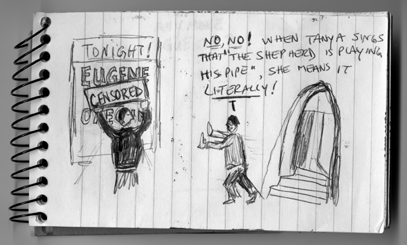 TONIGHT!
EUGENE
CENSORED
NO, NO! WHEN TANYA SINGS
THAT "THE SHEPHERD IS PLAYING
HIS PIPE", SHE MEANS IT
LITERALLY!